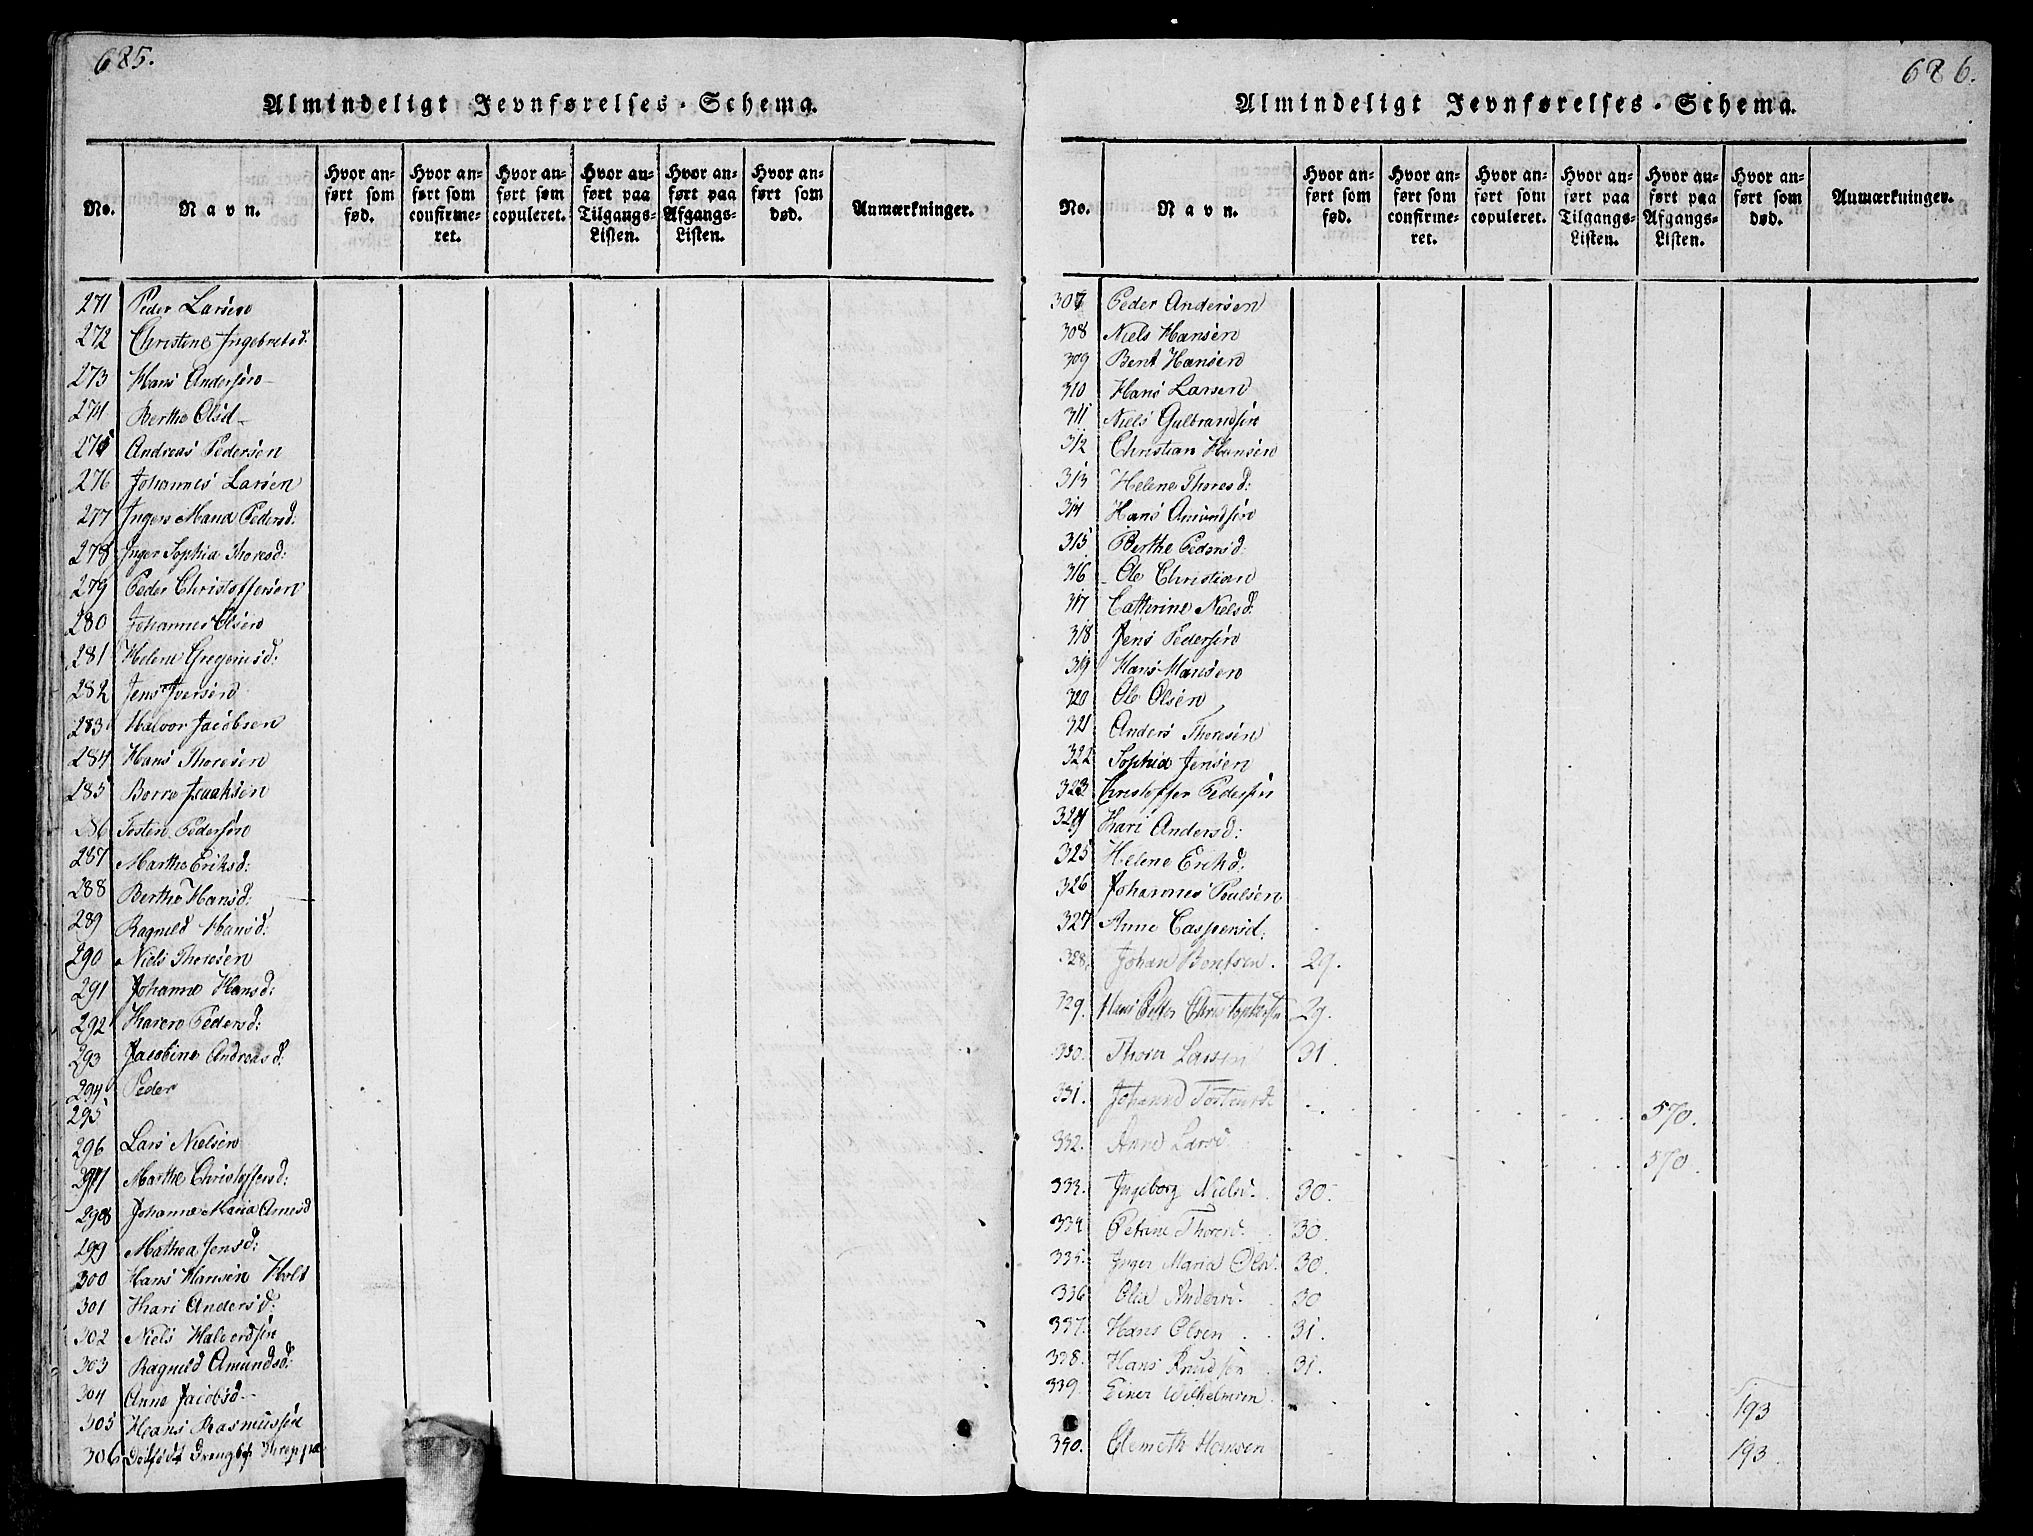 685.
Almindeligt Jevnførelses-Schema.
No.
Navn.
Hvor anført som fød.
Hvor anført som confirmeret.
Hvor anført som copuleret.
Hvor anført paa Tilgangs-Listen.
Hvor anført paa Afgangs-Listen.
Hvor anført som død.
Anmærkninger.
271 Peder Larsen
272 Christine Ingebretsd:
273 Hans Andersen
274 Berthe Olsd
275 Andreas Pedersen
276 Johannes Larsen
277 Inger Maria Pedersd:
278 Inger Sophia Thoresd:
279 Peder Christoffersen
280 Johannes Olsen
281 Helene Gregersd:
282 Jens Iversen
283 Halvor Jacobsen
284 Hans Thoresen
285 Borre Isaaksen
286 Tosten Pedersen
287 Marthe Eriksd:
288 Berthe Hansd:
289 Ragnild Hansd:
290 Niels Thoresen
291 Johanne Hansd:
292 Karen Pedersd:
293 Jacobine Andreasd:
294 Peder
295
296 Lars Nielsen
297 Marthe Christoffersd:
298 Johanne Maria Arnesd
299 Mathea Jensd:
300 Hans Hansen Holt
301 Kari Andersd:
302 Niels Halvordsen
303 Ragnild Amundsd:
304 Anne Jacobsd
305 Hans Rasmussen
306 Dødfødt
686.
Almindeligt Jevnførelses-Schema.
No.
Navn.
Hvor anført som fød.
Hvor anført som confirmeret.
Hvor anført som copuleret.
Hvor anført paa Tilgangs-Listen.
Hvor anført paa Afgangs-Listen.
Hvor anført som død.
Anmærkninger.
307 Peder Andersen
308 Niels Hansen
309 Bent Hansen
310 Hans Larsen
311 Niels Gulbrandsen
312 Christian Hansen
313 Helene Thoresd:
314 Hans Amundsen
315 Berthe Pedersd:
316 Ole Christian
317 Catherine Nielsd:
318 Jens Pedersen
319 Hans Hansen
320 Ole Olsen
321 Anders Thoresen
322 Sophia Jensen
323 Christoffer Pedersen
324 Kari Andersd:
325 Helene Eriksd:
326 Johannes Poulsen
327 Anne Caspersd:
328. Johan Bentsen. 29.
329. Hans Peter Christophersen 29.
330. Thorer Larsen 31.
331. Johanne Tostensd. 570.
332. Anne Larsd. 570.
333. Ingeborg Nielsd. 30.
334 Petrine Thoresd. 30.
335. Inger Maria Olsd. 30.
336 Olea Andersd. 30
337. Hans Olsen 31.
338. Hans Knudsen 31.
339 Einer Wilhelmsen. 193
340. Clemeth Hansen 193.